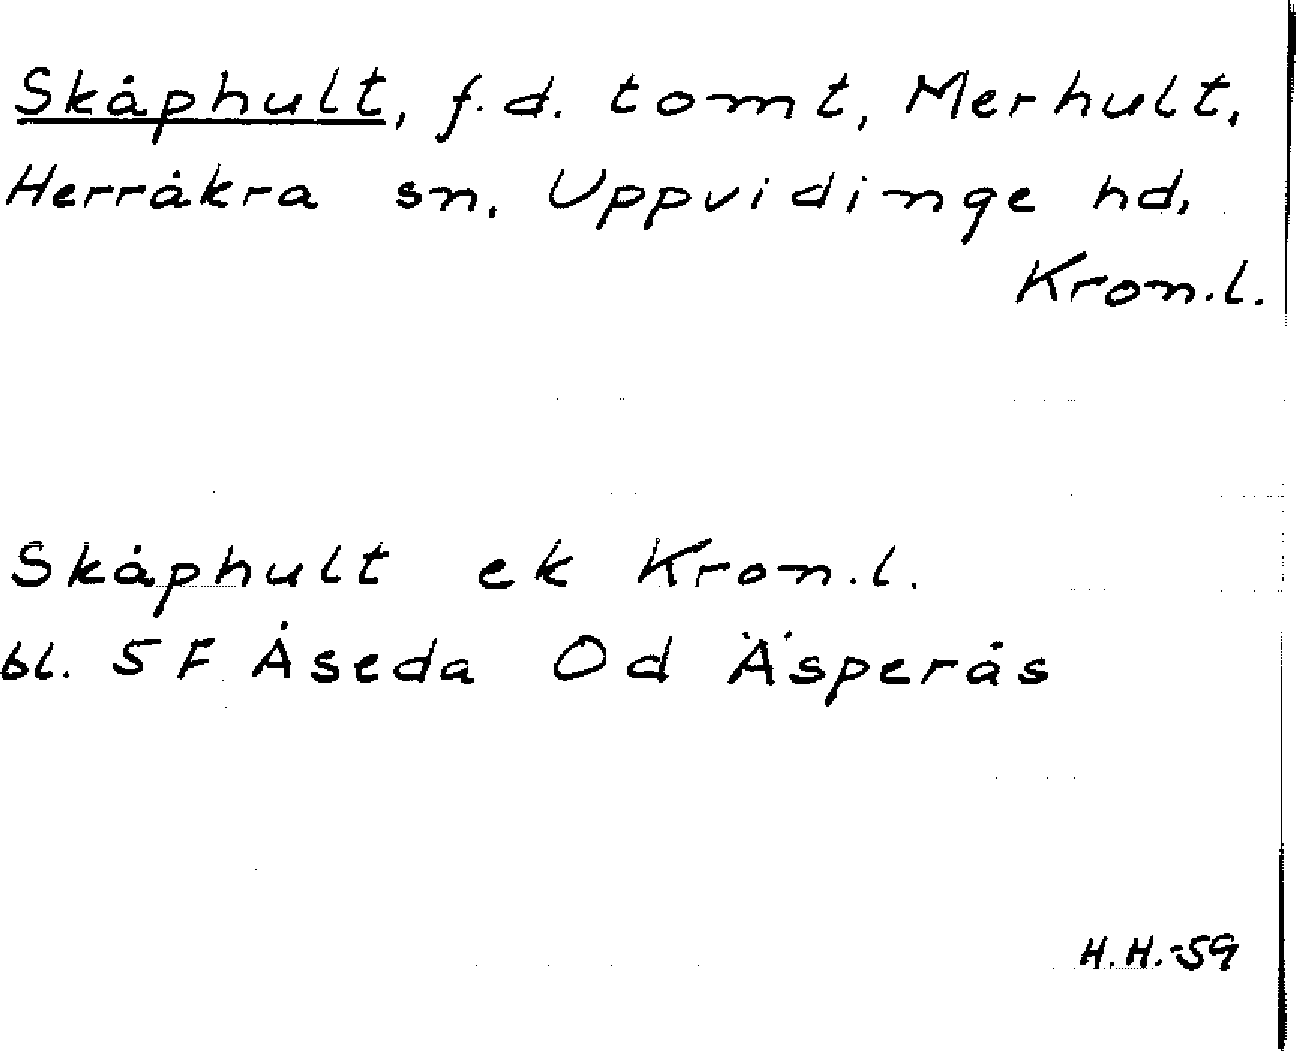 Skåphult, f.d. tomt, Merhult,
Herråkra sn, Uppvidinge hd,
Kron.l.
Skåphult ek Kron.l.
bl. 5F Åseda Od Äsperås
H.H.-59